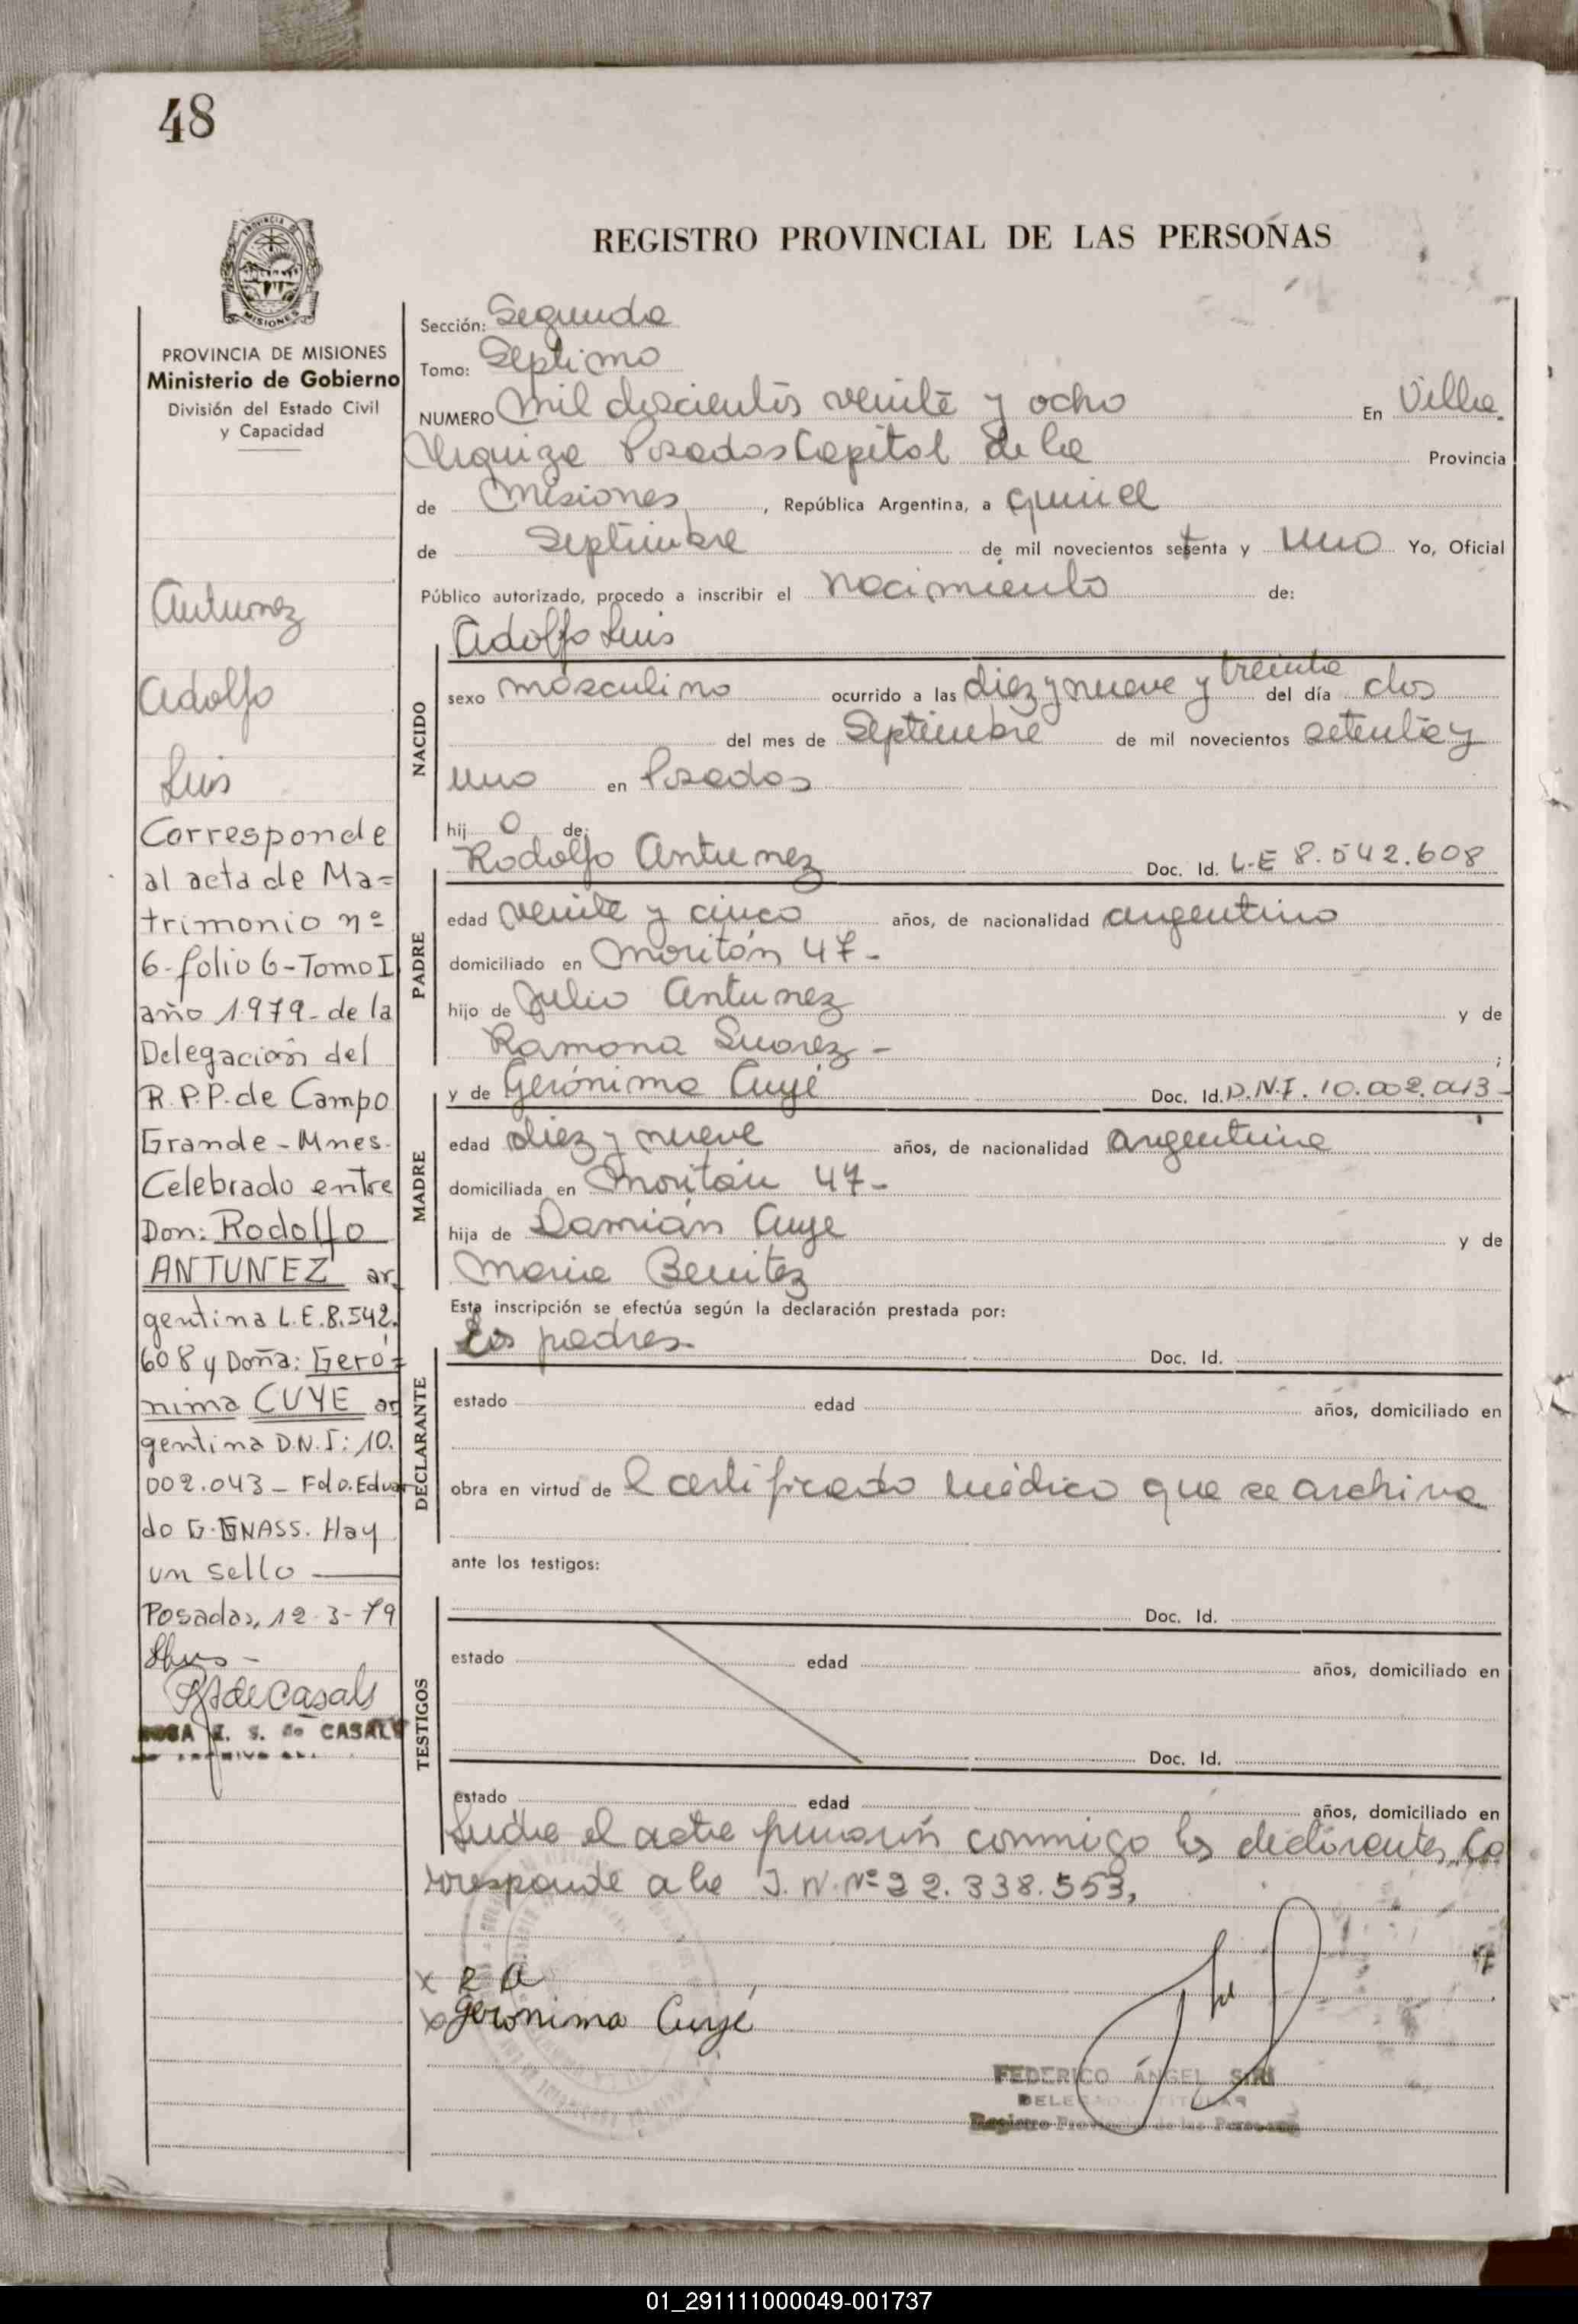 48
REGISTRO PROVINCIAL DE LAS PERSONAS
PROVINCIA DE MISIONES
Ministerio de Gobierno
División del Estado Civil
y Capacidad
Antunez
Adolfo
Luis
Corresponde
al acta de Ma=
trimonio nº
6-folio 6-Tomo I
año 1979-de la
Delegación del
R.P.P. de Campo
Grande-Mnes.
Celebrado entre
Don: Rodolfo
ANTUNEZ ar
gentina L.E.8.542.
608 y Doña: Geró=
nima CUYE ar
gentina D.N.I: 10.
002.043 - Fdo. Eduar
do G. GNASS. Hay
un sello
Posadas, 12-3-79
de Casals
S. de CASALS
Sección: Segunda
Tomo: Septimo
NUMERO Mil doscientos veinte y ocho En Villa
Urquiza Posadas Capital de la Provincia
de Misiones, República Argentina, a quince
de Septiembre de mil novecientos setenta y uno Yo, Oficial
Público autorizado, procedo a inscribir el nacimiento de:
Adolfo Luis
NACIDO
sexo masculino ocurrido a las diez y nueve y treinta del día dos
del mes de Septiembre de mil novecientos setenta y
uno en Posadas
hij o de:
Rodolfo Antunez Doc. Id. L-E 8.542.608
PADRE
edad veinte y cinco años, de nacionalidad argentino
domiciliado en Moritán 47-
hijo de Julio Antunez y de
Ramona Suarez - ;
y de Gerónima Cuyé Doc. Id. D.N.I. 10.002.043-
MADRE
edad diez y nueve años, de nacionalidad argentina
domiciliada en Moritán 47-
hija de Damián Cuye y de
Maria Benitez
Esta inscripción se efectúa según la declaración prestada por:
Los padres Doc. Id.
DECLARANTE
estado edad años, domiciliado en
obra en virtud de l certificado médico que se archiva
ante los testigos:
Doc. Id.
TESTIGOS
estado edad años, domiciliado en
Doc. Id.
estado edad años, domiciliado en
Leída el acta firmarón conmigo los declarantes, Co
rresponde a la I. N. Nº 22.338.553,
x R A
x Geronima Cuyé
FEDERICO ÁNGEL SIRI
DELEGADO TITULAR
Registro Provincial de las Personas
01_291111000049-001737